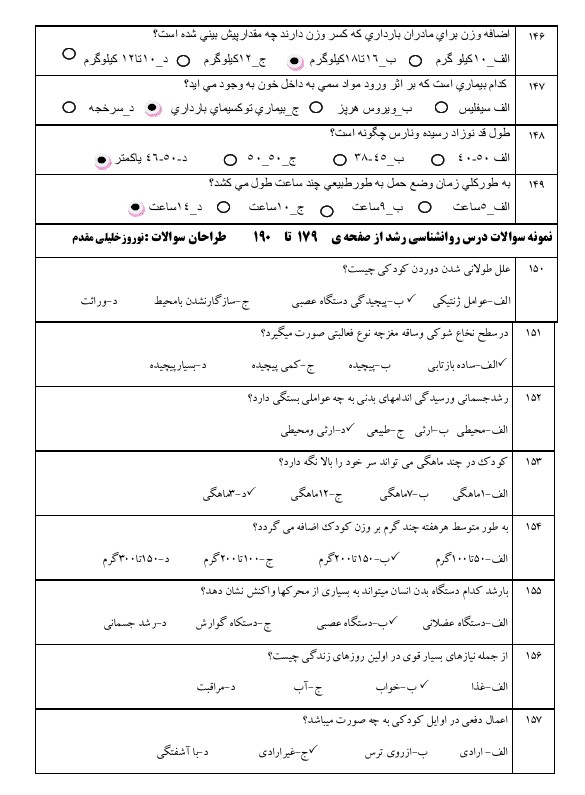 ۱۴۶ اضافه وزن براي مادران بارداري که کسر وزن دارند چه مقدارپیش بیني شده است؟
الف_۱۰کیلو گرم ب_۱۶تا۱۸کیلوگرم ج_۱۲کیلوگرم د_۱۰تا۱۲ کیلوگرم
۱۴۷ کدام بیماري است که بر اثر ورود مواد سمي به داخل خون به وجود مي اید؟
الف سیفلیس ب_ویروس هرپز ج_بیماري توکسیماي بارداري د_سرخجه
۱۴۸ طول قد نوزاد رسیده ونارس چگونه است؟
الف ۵۰-۴۰ ب_۴۵-۳۸ ج_۵۰_۵۰ د-۵۰-۴۶ یاکمتر
۱۴۹ به طورکلي زمان وضع حمل به طورطبیعي چند ساعت طول مي کشد؟
الف_۵ساعت ب_۹ساعت ج_۱۰ساعت د_۱۴ساعت
نمونه سوالات درس روانشناسی رشد از صفحه ی ۱۷۹ تا ۱۹۰ طراحان سوالات :نوروزخلیلی مقدم
۱۵۰ علل طولانی شدن دوردن کودکی چیست؟
الف-عوامل ژنتیکی ✓ب-پیچیدگی دستگاه عصبی ج-سازگارنشدن بامحیط د-وراثت
۱۵۱ درسطح نخاع شوکی وساقه مغزچه نوع فعالبتی صورت میگیرد؟
✓الف-ساده بازتابی ب-پیچیده ج-کمی پیچیده د-بسیارپیچیده
۱۵۲ رشدجسمانی ورسیدگی اندامهای بدنی به چه عواملی بستگی دارد؟
الف-محیطی ب-ارثی ج-طبیعی ✓د-ارثی ومحیطی
۱۵۳ کودک در چند ماهگی می تواند سر خود را بالا نگه دارد؟
الف-۱ماهگی ب-۷ماهگی ج-۱۲ماهگی ✓د-۳ماهگی
۱۵۴ به طور متوسط هرهفته چند گرم بر وزن کودک اضافه می گردد؟
الف-۵۰تا۱۰۰گرم ✓ب-۱۵۰تا۲۰۰گرم ج-۱۰۰تا۲۰۰گرم د-۱۵۰تا۳۰۰گرم
۱۵۵ بارشد کدام دستگاه بدن انسان میتواند به بسیاری از محرکها واکنش نشان دهد؟
الف-دستگاه عضلانی ✓ب-دستگاه عصبی ج-دستگاه گوارش د-رشد جسمانی
۱۵۶ از جمله نیازهای بسیار قوی در اولین روزهای زندگی چیست؟
الف-غذا ✓ب-خواب ج-آب د-مراقبت
۱۵۷ اعمال دفعی در اوایل کودکی به چه صورت میباشد؟
الف- ارادی ب-ازروی ترس ✓ج-غیرارادی د-با آشفتگی